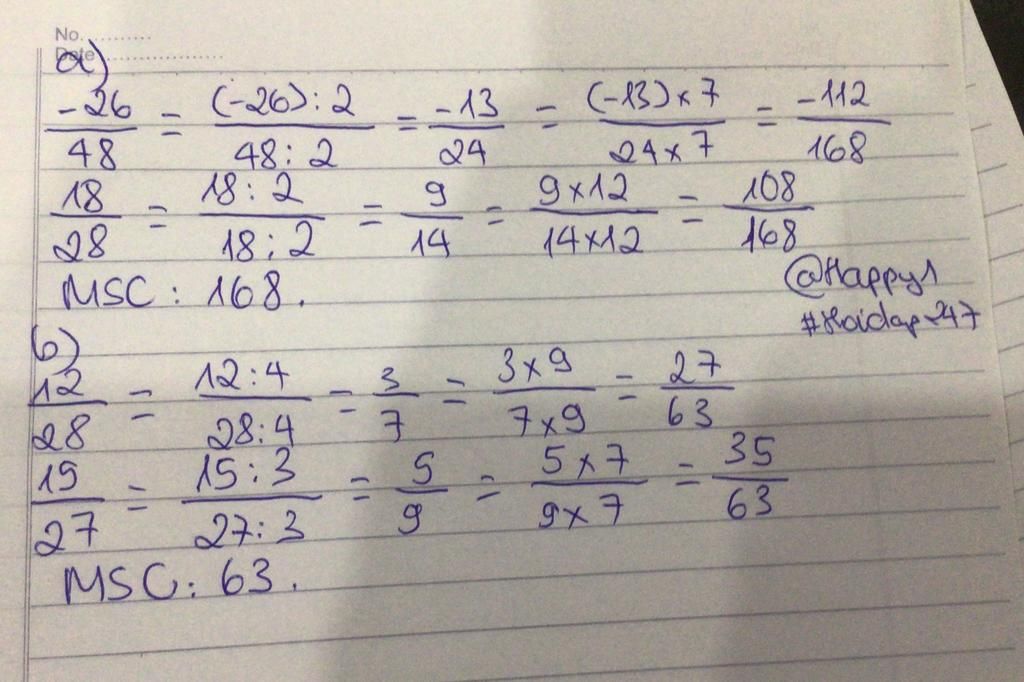 No. ...........
Date ....................
a)
-26/48 = (-26):2/48:2 = -13/24 = (-13)×7/24×7 = -112/168
18/28 = 18:2/18:2 = 9/14 = 9×12/14×12 = 108/168
MSC: 168.
@Happy1
#Hoidap247
b)
12/28 = 12:4/28:4 = 3/7 = 3×9/7×9 = 27/63
15/27 = 15:3/27:3 = 5/9 = 5×7/9×7 = 35/63
MSC: 63.